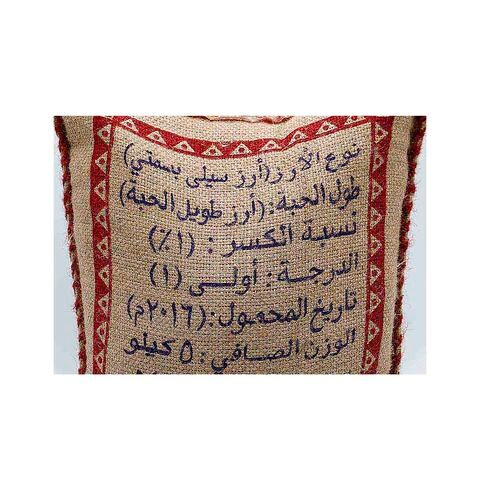 نوع الأرز (أرز سيلى بسمتي)
طول الحبة: (أرز طويل الحبة)
نسبة الكسر : (١٪)
الدرجة : أولى (١)
تاريخ المحصول: (٢٠١٦م)
الوزن الصافي : ٥ كيلو